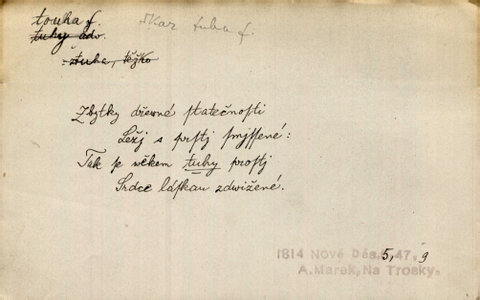 touha f.
tuhy adv.
ztuha, těžko
Zkaz tuha f.
Zbytky dřewné statečnosti
Ležj s prstj smjssené:
Tak se wěkem tuhy prostj
Srdce láskau zdwižené.
1814 Nové Bás. 47. 5, 9
A. Marek, Na Trosky.